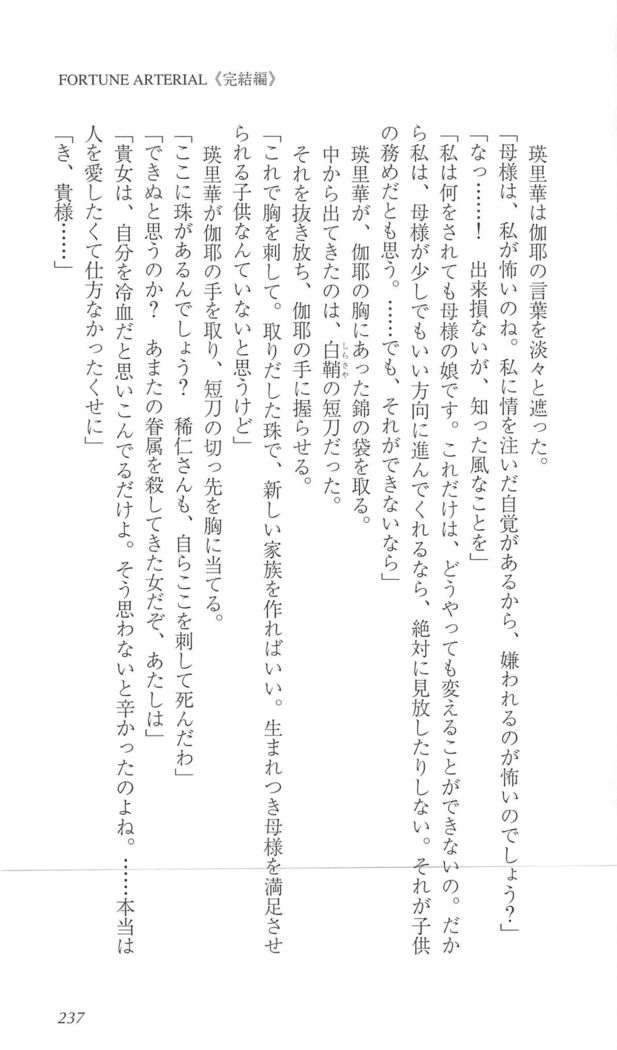 FORTUNE ARTERIAL《完結編》
　瑛里華は伽耶の言葉を淡々と遮った。
「母様は、私が怖いのね。私に情を注いだ自覚があるから、嫌われるのが怖いのでしょう？」
「なっ……！　出来損ないが、知った風なことを」
「私は何をされても母様の娘です。これだけは、どうやっても変えることができないの。だか
ら私は、母様が少しでもいい方向に進んでくれるなら、絶対に見放したりしない。それが子供
の務めだとも思う。……でも、それができないなら」
　瑛里華が、伽耶の胸にあった錦の袋を取る。
　中から出てきたのは、白鞘しらさやの短刀だった。
　それを抜き放ち、伽耶の手に握らせる。
「これで胸を刺して。取りだした珠で、新しい家族を作ればいい。生まれつき母様を満足させ
られる子供なんていないと思うけど」
　瑛里華が伽耶の手を取り、短刀の切っ先を胸に当てる。
「ここに珠があるんでしょう？　稀仁さんも、自らここを刺して死んだわ」
「できぬと思うのか？　あまたの眷属を殺してきた女だぞ、あたしは」
「貴女は、自分を冷血だと思いこんでるだけよ。そう思わないと辛かったのよね。……本当は
人を愛したくて仕方なかったくせに」
「き、貴様……」
237